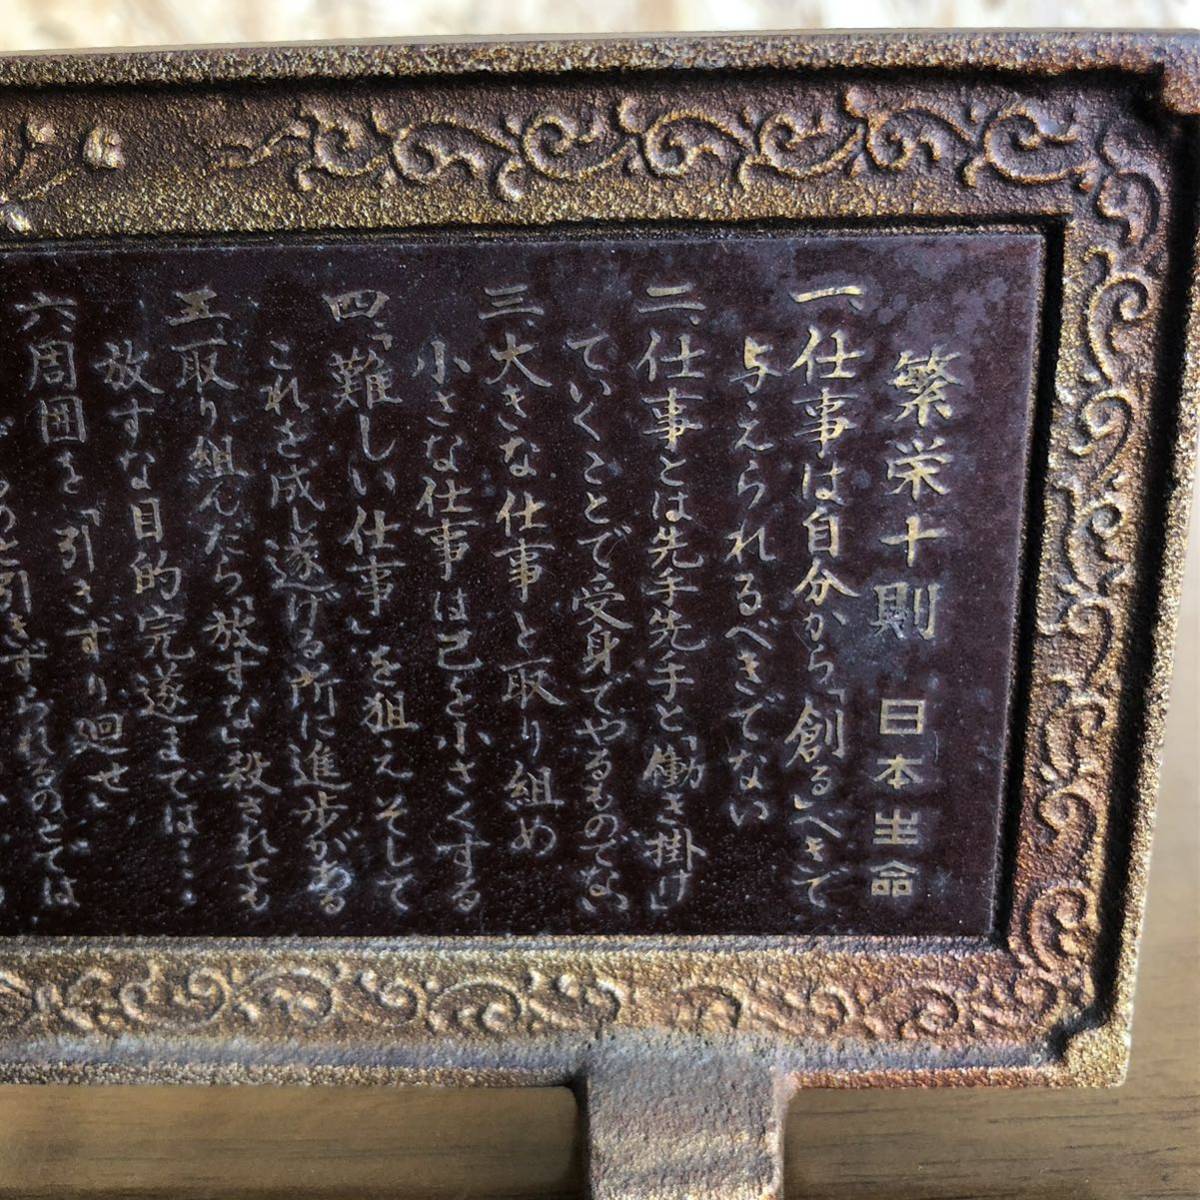 繁栄十則 日本生命
一、仕事は自分から「創る」べきで
与えられるべきでない
二、仕事とは先手先手と「働き掛け」
ていくことで受身でやるものでない
三、大きな仕事と取り組め
小さな仕事は己を小さくする
四、「難しい仕事」を狙えそして
これを成し遂げる所に進歩がある
五、取り組んだら「放すな」殺されても
放すな目的完遂までは……
六、周囲を「引きずり廻せ」
引きずられるのとでは